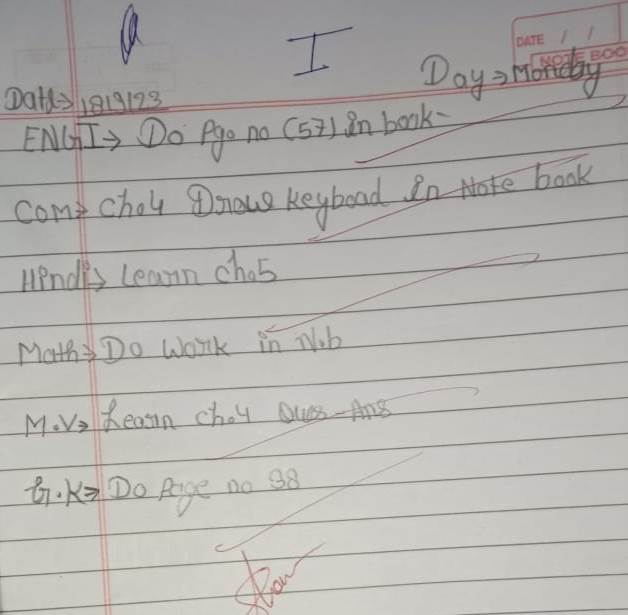 I
DATE / /
NOTE BOO
Day → Monday
Date → 18/9/23
ENG I → Do Pge no (57) in book-
Com → Ch.4 Draw Keyboad in Note book
Hindi → Learn Ch.5
Math → Do Work in N.b
M.V → Learn Ch.4 Ques-Ans
G.K → Do Page no 38